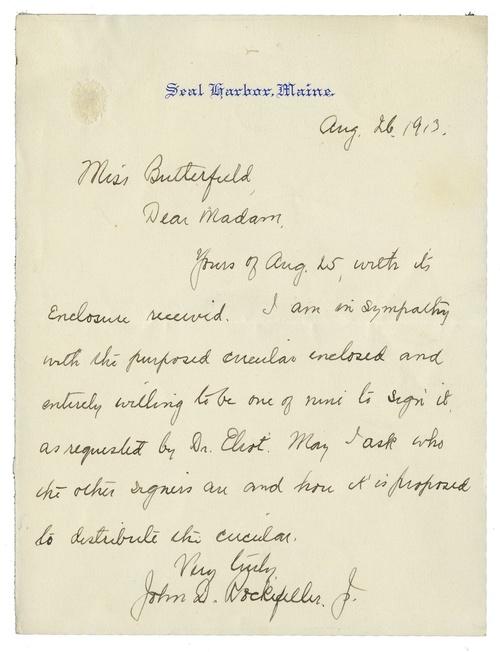 Seal Harbor, Maine.
Aug. 26. 1913.
Miss Butterfield,
Dear Madam,
Yours of Aug. 25, with its
enclosure received. I am in sympathy
with the purposed circular enclosed and
entirely willing to be one of nine to sign it,
as requested by Dr. Eliot. May I ask who
the other signers are and how it is proposed
to distribute the circular.
Very truly
John D. Rockefeller. Jr.